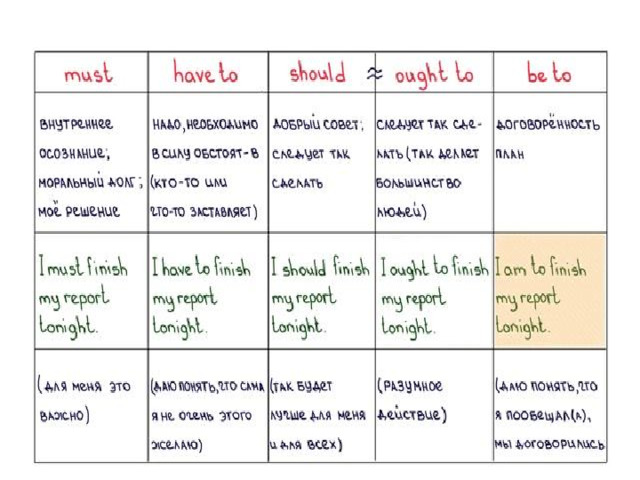 must have to should ≈ ought to be to
внутреннее
осознание;
моральный долг;
моё решение
надо, необходимо
в силу обстоят-в
(кто-то или
что-то заставляет)
добрый совет;
следует так
сделать
следует так сде-
лать (так делает
большинство
людей)
договорённость
план
I must finish
my report
tonight.
I have to finish
my report
tonight.
I should finish
my report
tonight.
I ought to finish
my report
tonight.
I am to finish
my report
tonight.
(для меня это
важно)
(даю понять, что сама
я не очень этого
желаю)
(так будет
лучше для меня
и для всех)
(разумное
действие)
(даю понять, что
я пообещал(а),
мы договорились